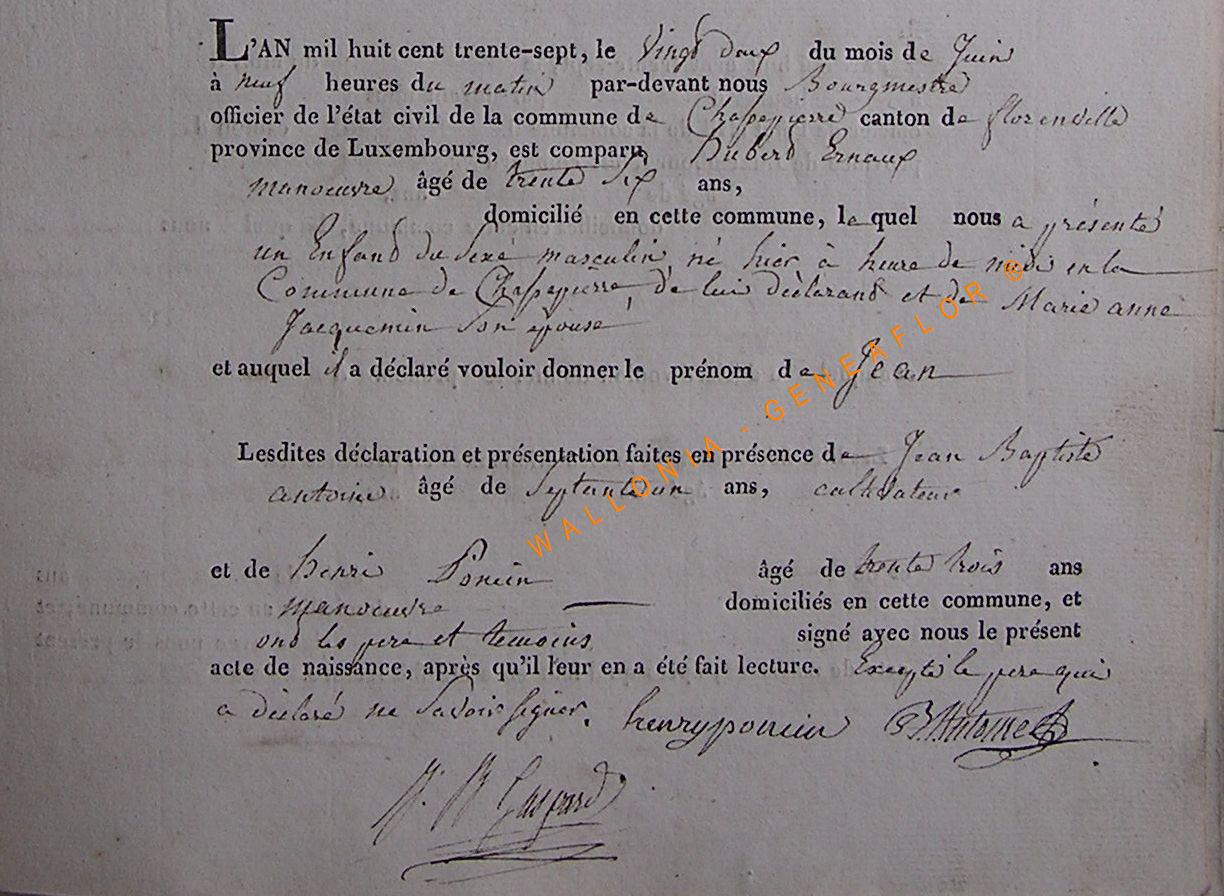 L'AN mil huit cent trente-sept, le vingt deux du mois de Juin
à neuf heures du matin par-devant nous Bourgmestre
officier de l'état civil de la commune de Chassepierre canton de florenville
province de Luxembourg, est comparu, hubert Ernaux
manoeuvre âgé de trente six ans,
domicilié en cette commune, le quel nous a présenté
un Enfant du Sexe masculin, né hier à heure de midi en la
Commune de Chassepierre, de lui déclarant et de Marie anne
Jacquemin Son épouse
et auquel il a déclaré vouloir donner le prénom de Jean
Lesdites déclaration et présentation faites en présence de Jean Baptiste
antoine âgé de Septante un ans, cultivateur
et de henri Poncin âgé de trente trois ans
manoeuvre domiciliés en cette commune, et
ont les pere et temoins signé avec nous le présent
acte de naissance, après qu'il leur en a été fait lecture. Excepté le pere qui
a déclaré ne Savoir signer. henry poncin JB Antoine
Gaspard
WALLONIA - GENEAFLOR ©